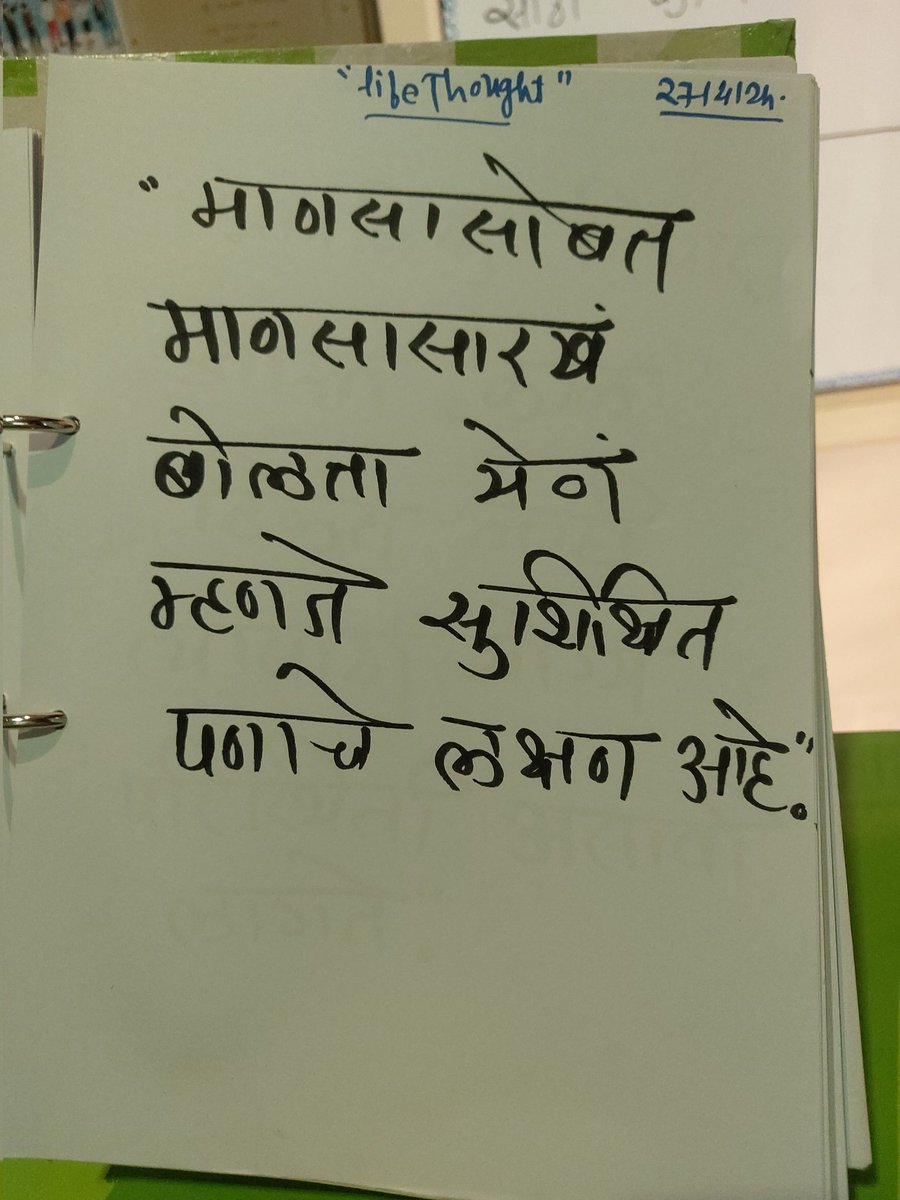 साठी
"lifeThought" 27/4/24.
"माणसासोबत
माणसासारखं
बोलता येणं
म्हणजे सुशिक्षित
पणाचे लक्षण आहे."